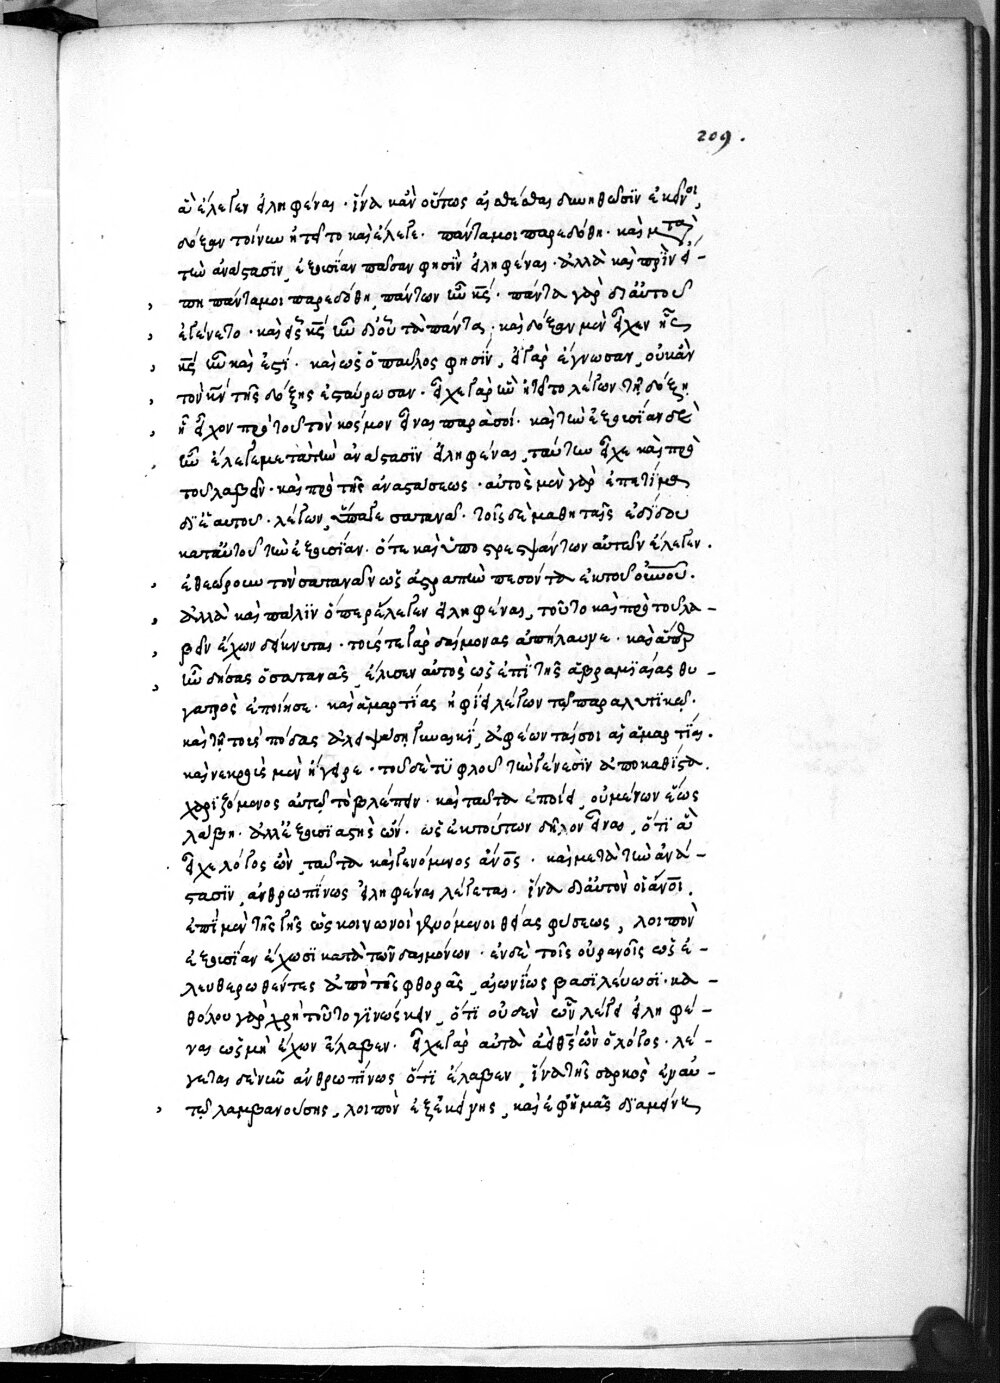 ἃ ἔλεγεν εἰληφέναι · ἵνα κἂν οὕτως δυνηθῶσϊν ἐκεῖνοι,
δόξαν τοίνυν ἠτεῖτο καὶ ἔλεγε · πάντα μοι παρεδόθη · καὶ μετὰ
τὴν ἀνάστασϊν, ἐξουσίαν πᾶσαν φησῒν εἰληφέναι · ἀλλὰ καὶ πρῒν εἴ-
πῃ πάντα μοι παρεδόθη, πάντων ἦν κς̅ · πάντα γὰρ δι αὐτοῦ
ἐγένετο · καὶ εἷς κς̅ ἦν δι οὗ τὰ πάντα, καὶ δόξαν μὲν εἶχεν ἧς
κς̅ ἦν καὶ ἐστί · καὶ ὡς ὁ παυλος φησίν, εἰ γὰρ ἔγνωσαν, οὐκ ἂν
τὸν κν̅ τῆς δόξης ἐσταύρωσαν · εἶχε γὰρ ὧν ἠτεῖτο λέγων τῇ δόξῃ
ᾗ εἶχον πρὸ τοῦ τὸν κόσμον εἶναι παρὰ σοί · καὶ τὴν ἐξουσίαν δὲ
ἣν ἔλεγε μετὰ τὴν ἀνάστασϊν εἰληφέναι, ταύτην εἶχε καὶ πρὸ
τοῦ λαβεῖν · καὶ πρὸ τῆς ἀναστάσεως · αὐτὸς μὲν γὰρ ἐπετίμα
δϊ ἑαυτοῦ · λέγων, ὕπαγε σατανᾶ · τοῖς δὲ μαθηταῖς ἐδίδου
κατ αὐτοῦ τὴν ἐξουσίαν · ὅτε καὶ ὑποστρεψάντων αὐτῶν ἔλεγεν ·
ἐθεώρουν τὸν σατανᾶν ὡς ἀστραπὴν πεσόντα ἐκ τοῦ οὐνοῦ ·
ἀλλὰ καὶ πάλϊν ὅπερ ἔλεγεν εἰληφέναι, τοῦτο καὶ πρὸ τοῦ λα-
βεῖν ἔχων δείκνυται · τούς τε γὰρ δαίμονας ἀπήλαυνε · καὶ ἅπερ
ἦν δήσας ὁ σατανᾶς, ἔλυσεν αὐτὸς ὡς ἐπῒ τῆς ἀβραμϊαίας θυ-
γατρὸς ἐποίησε · καὶ ἁμαρτίας ἠφίει λέγων τῷ παραλυτϊκῷ ·
καὶ τῇ τοὺς πόδας ἀλειψάσῃ γυναικῒ, ἀφέωνταί σοι αἱ ἁμαρτίαι ·
καὶ νεκροὺς μὲν ἤγειρε · τοῦ δὲ τϋφλοῦ τὴν γένεσϊν ἀποκαθίστα ·
χαρϊζόμενος αὐτῷ τὸ βλέπειν · καὶ ταῦτα ἐποίει, οὐ μένων ἕως
λάβῃ · ἀλλ ἐξουσϊαστὴς ὤν · ὡς ἐκ τούτων δῆλον εἶναι, ὅτϊ ἃ
εἶχε λόγος ὢν, ταῦτα καὶ γενόμενος ἄνος̅ · καὶ μετὰ τὴν ἀνά-
στασϊν, ἀνθρωπίνως εἰληφέναι λέγεται · ἵνα δι αὐτὸν οἱ ἄνοι̅,
ἐπῒ μὲν τῆς γῆς ὡς κοινωνοὶ γενόμενοι θείας φύσεως, λοιπὸν
ἐξουσίαν ἔχωσϊ κατὰ τῶν δαιμόνων · ἐν δὲ τοῖς οὐρανοῖς ὡς ἐ-
λευθερωθέντες ἀπὸ τῆς φθορᾶς, αἰωνίως βασϊλεύωσϊ · κα-
θόλου γὰρ χρὴ τοῦτο γϊνώσκειν, ὅτϊ οὐδὲν ὧν λέγει εἰληφέ-
ναι ὡς μὴ ἔχων ἔλαβεν · εἶχε γὰρ αὐτὰ ἀεὶ θς̅ ὢν ὁ λόγος · λέ-
γεται δὲ νῦν ἀνθρωπίνως ὅτϊ ἔλαβεν, ἵνα τῆς σαρκὸς ἐν αὐ-
τῷ λαμβανούσης, λοιπὸν ἐξ ἐκείνης, καὶ ἐφ ἡμᾶς δϊαμείνῃ
209.